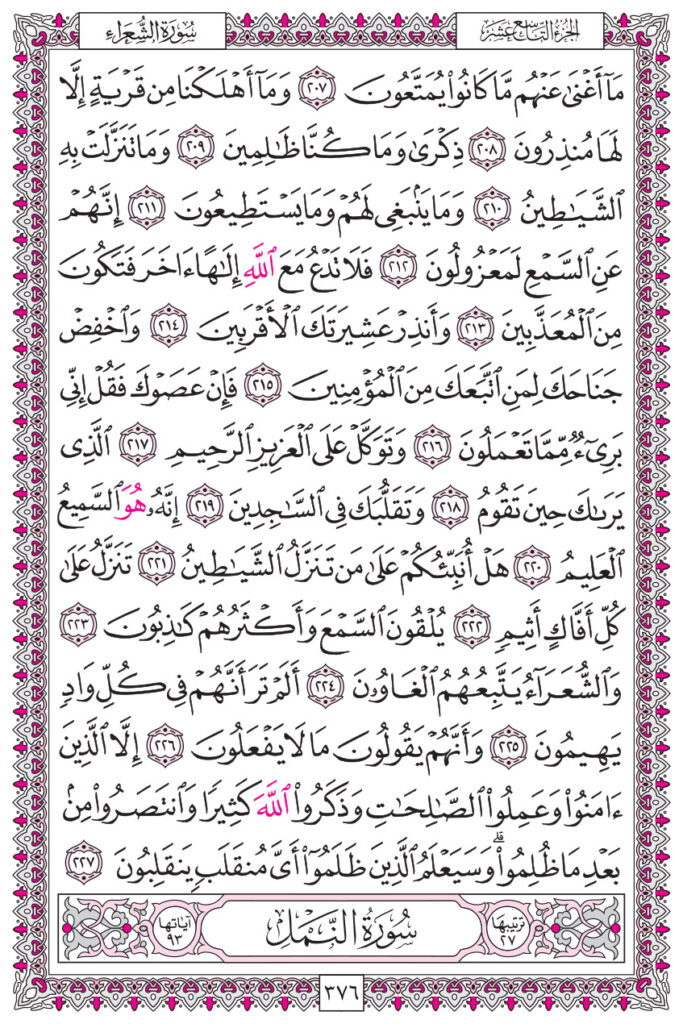 الجزء التاسع عشر
سُورَةُ الشُّعَرَاءِ
مَآ أَغْنَىٰ عَنْهُم مَّا كَانُوا۟ يُمَتَّعُونَ ٢٠٧ وَمَآ أَهْلَكْنَا مِن قَرْيَةٍ إِلَّا
لَهَا مُنذِرُونَ ٢٠٨ ذِكْرَىٰ وَمَا كُنَّا ظَـٰلِمِينَ ٢٠٩ وَمَا تَنَزَّلَتْ بِهِ
ٱلشَّيَـٰطِينُ ٢١٠ وَمَا يَنۢبَغِى لَهُمْ وَمَا يَسْتَطِيعُونَ ٢١١ إِنَّهُمْ
عَنِ ٱلسَّمْعِ لَمَعْزُولُونَ ٢١٢ فَلَا تَدْعُ مَعَ ٱللَّهِ إِلَـٰهًا ءَاخَرَ فَتَكُونَ
مِنَ ٱلْمُعَذَّبِينَ ٢١٣ وَأَنذِرْ عَشِيرَتَكَ ٱلْأَقْرَبِينَ ٢١٤ وَٱخْفِضْ
جَنَاحَكَ لِمَنِ ٱتَّبَعَكَ مِنَ ٱلْمُؤْمِنِينَ ٢١٥ فَإِنْ عَصَوْكَ فَقُلْ إِنِّى
بَرِىٓءٌ مِّمَّا تَعْمَلُونَ ٢١٦ وَتَوَكَّلْ عَلَى ٱلْعَزِيزِ ٱلرَّحِيمِ ٢١٧ ٱلَّذِى
يَرَىٰكَ حِينَ تَقُومُ ٢١٨ وَتَقَلُّبَكَ فِى ٱلسَّـٰجِدِينَ ٢١٩ إِنَّهُۥ هُوَ ٱلسَّمِيعُ
ٱلْعَلِيمُ ٢٢٠ هَلْ أُنَبِّئُكُمْ عَلَىٰ مَن تَنَزَّلُ ٱلشَّيَـٰطِينُ ٢٢١ تَنَزَّلُ عَلَىٰ
كُلِّ أَفَّاكٍ أَثِيمٍ ٢٢٢ يُلْقُونَ ٱلسَّمْعَ وَأَكْثَرُهُمْ كَـٰذِبُونَ ٢٢٣
وَٱلشُّعَرَآءُ يَتَّبِعُهُمُ ٱلْغَاوُۥنَ ٢٢٤ أَلَمْ تَرَ أَنَّهُمْ فِى كُلِّ وَادٍ
يَهِيمُونَ ٢٢٥ وَأَنَّهُمْ يَقُولُونَ مَا لَا يَفْعَلُونَ ٢٢٦ إِلَّا ٱلَّذِينَ
ءَامَنُوا۟ وَعَمِلُوا۟ ٱلصَّـٰلِحَـٰتِ وَذَكَرُوا۟ ٱللَّهَ كَثِيرًا وَٱنتَصَرُوا۟ مِنۢ
بَعْدِ مَا ظُلِمُوا۟ ۗ وَسَيَعْلَمُ ٱلَّذِينَ ظَلَمُوٓا۟ أَىَّ مُنقَلَبٍ يَنقَلِبُونَ ٢٢٧
ترتيبها ٢٧ سُورَةُ النَّمْلِ آياتها ٩٣
٣٧٦